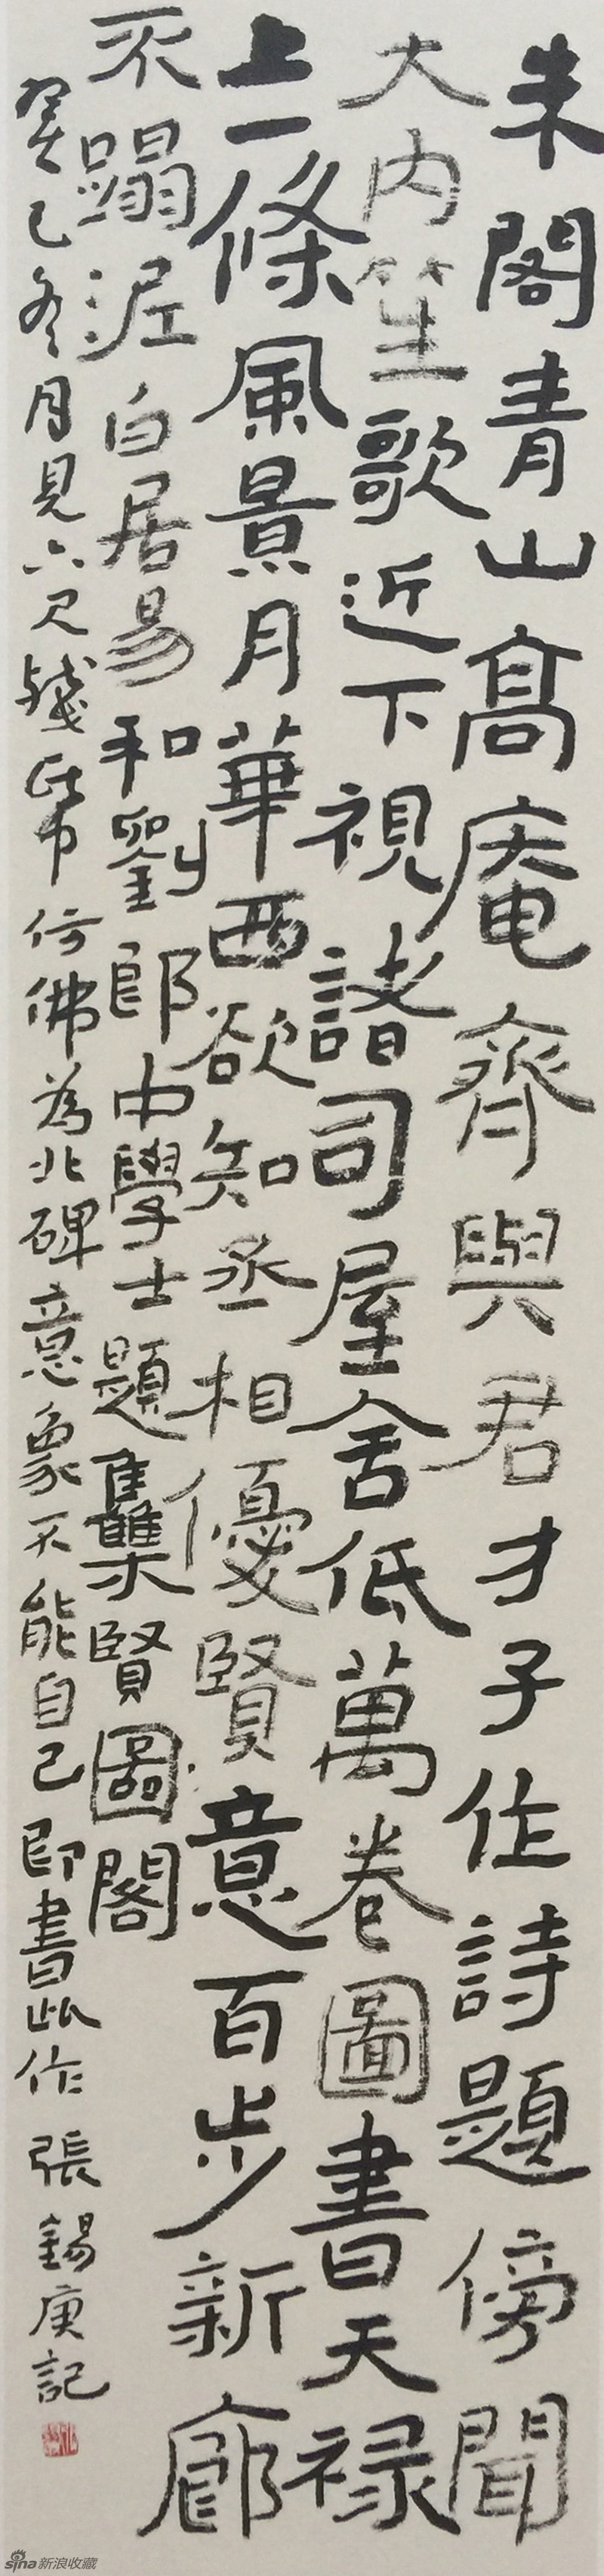 朱閣青山高庵齊與君才子作詩題傍聞
大内笙歌近下視諸司屋舍低萬卷圖書天禄
上一條風景月華西欲知丞相優賢意百步新廊
不蹋泥白居易和劉郎中學士題集賢圖閣
癸巳冬月見六尺殘紙仿佛為北碑意象不能自已即書此作張錫庚記
sina新浪收藏